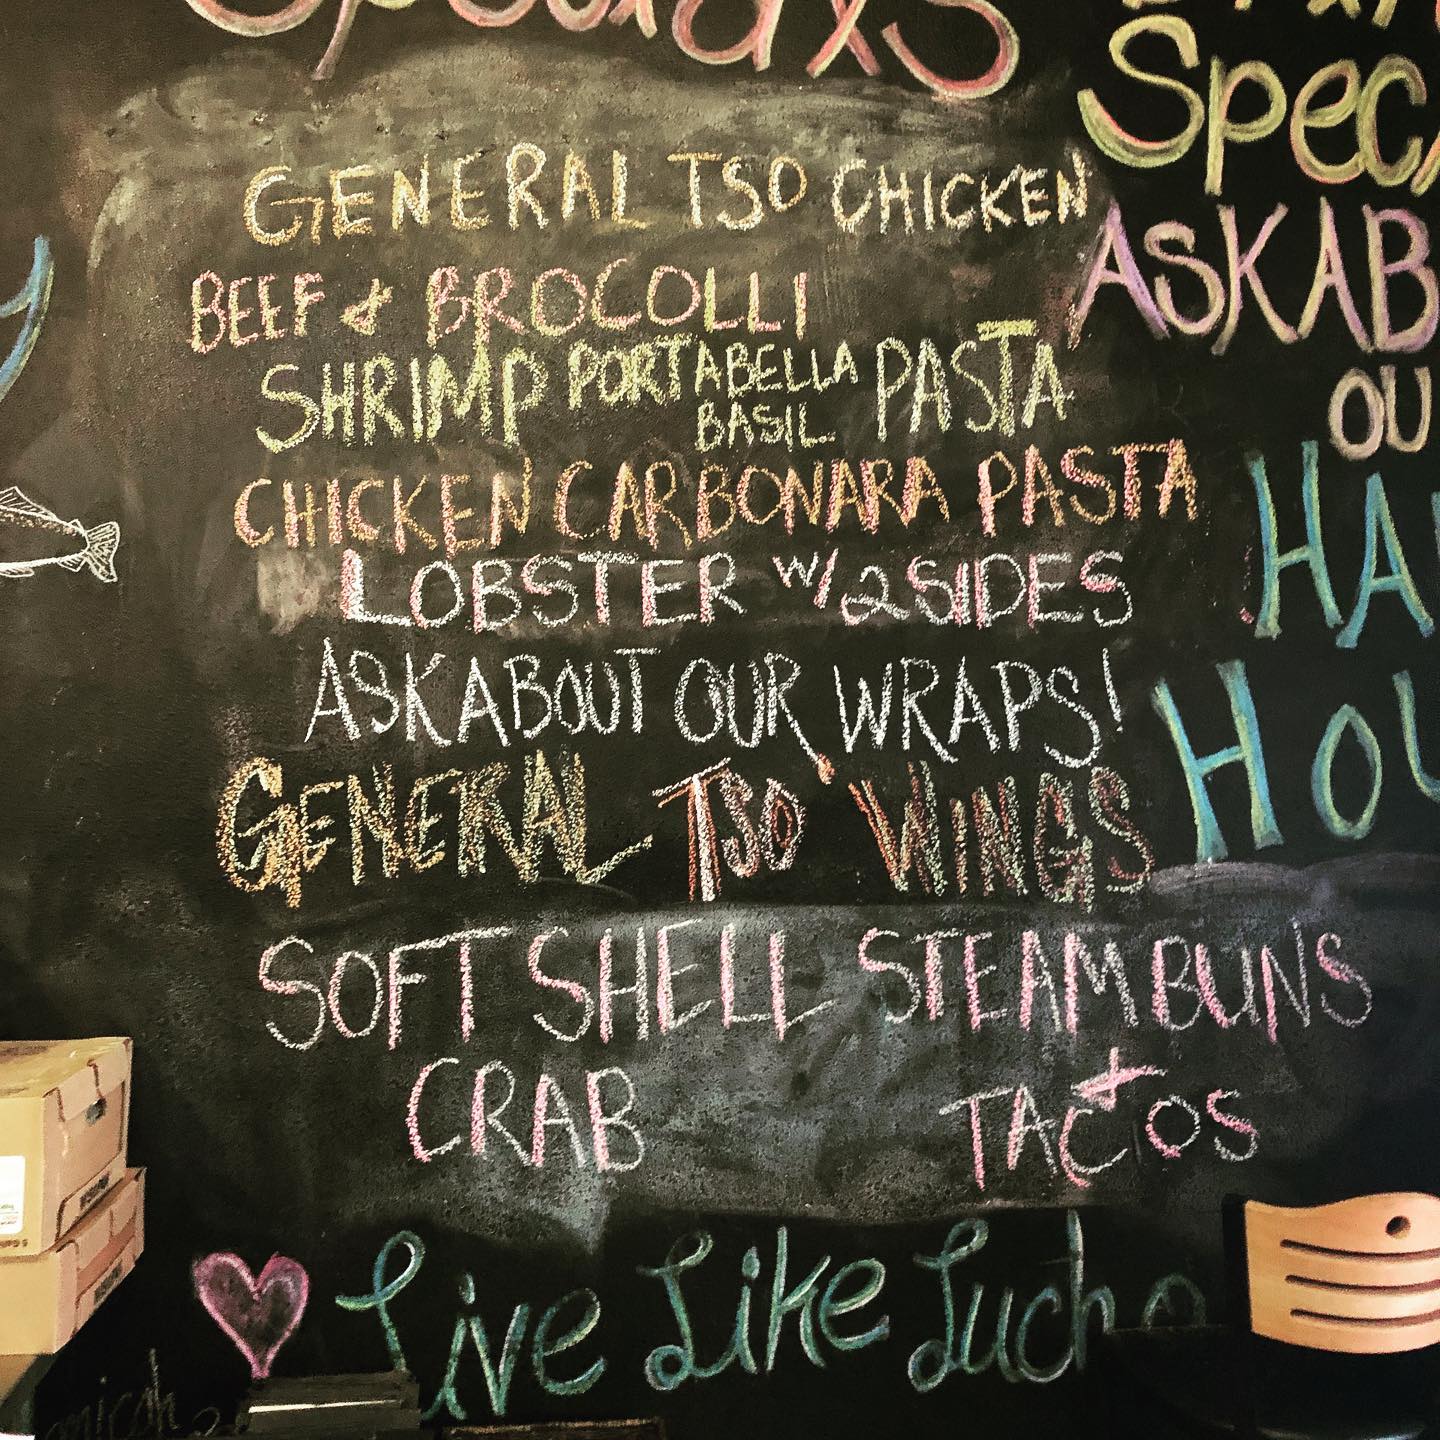 Specials
GENERAL TSO CHICKEN
BEEF & BROCOLLI
SHRIMP PORTABELLA BASIL PASTA
CHICKEN CARBONARA PASTA
LOBSTER W/ 2 SIDES
ASK ABOUT OUR WRAPS!
GENERAL TSO WINGS
SOFT SHELL STEAM BUNS
CRAB + TACOS
Live Like Lucho
micah
Spec
ASK AB
OU
HA
HOU